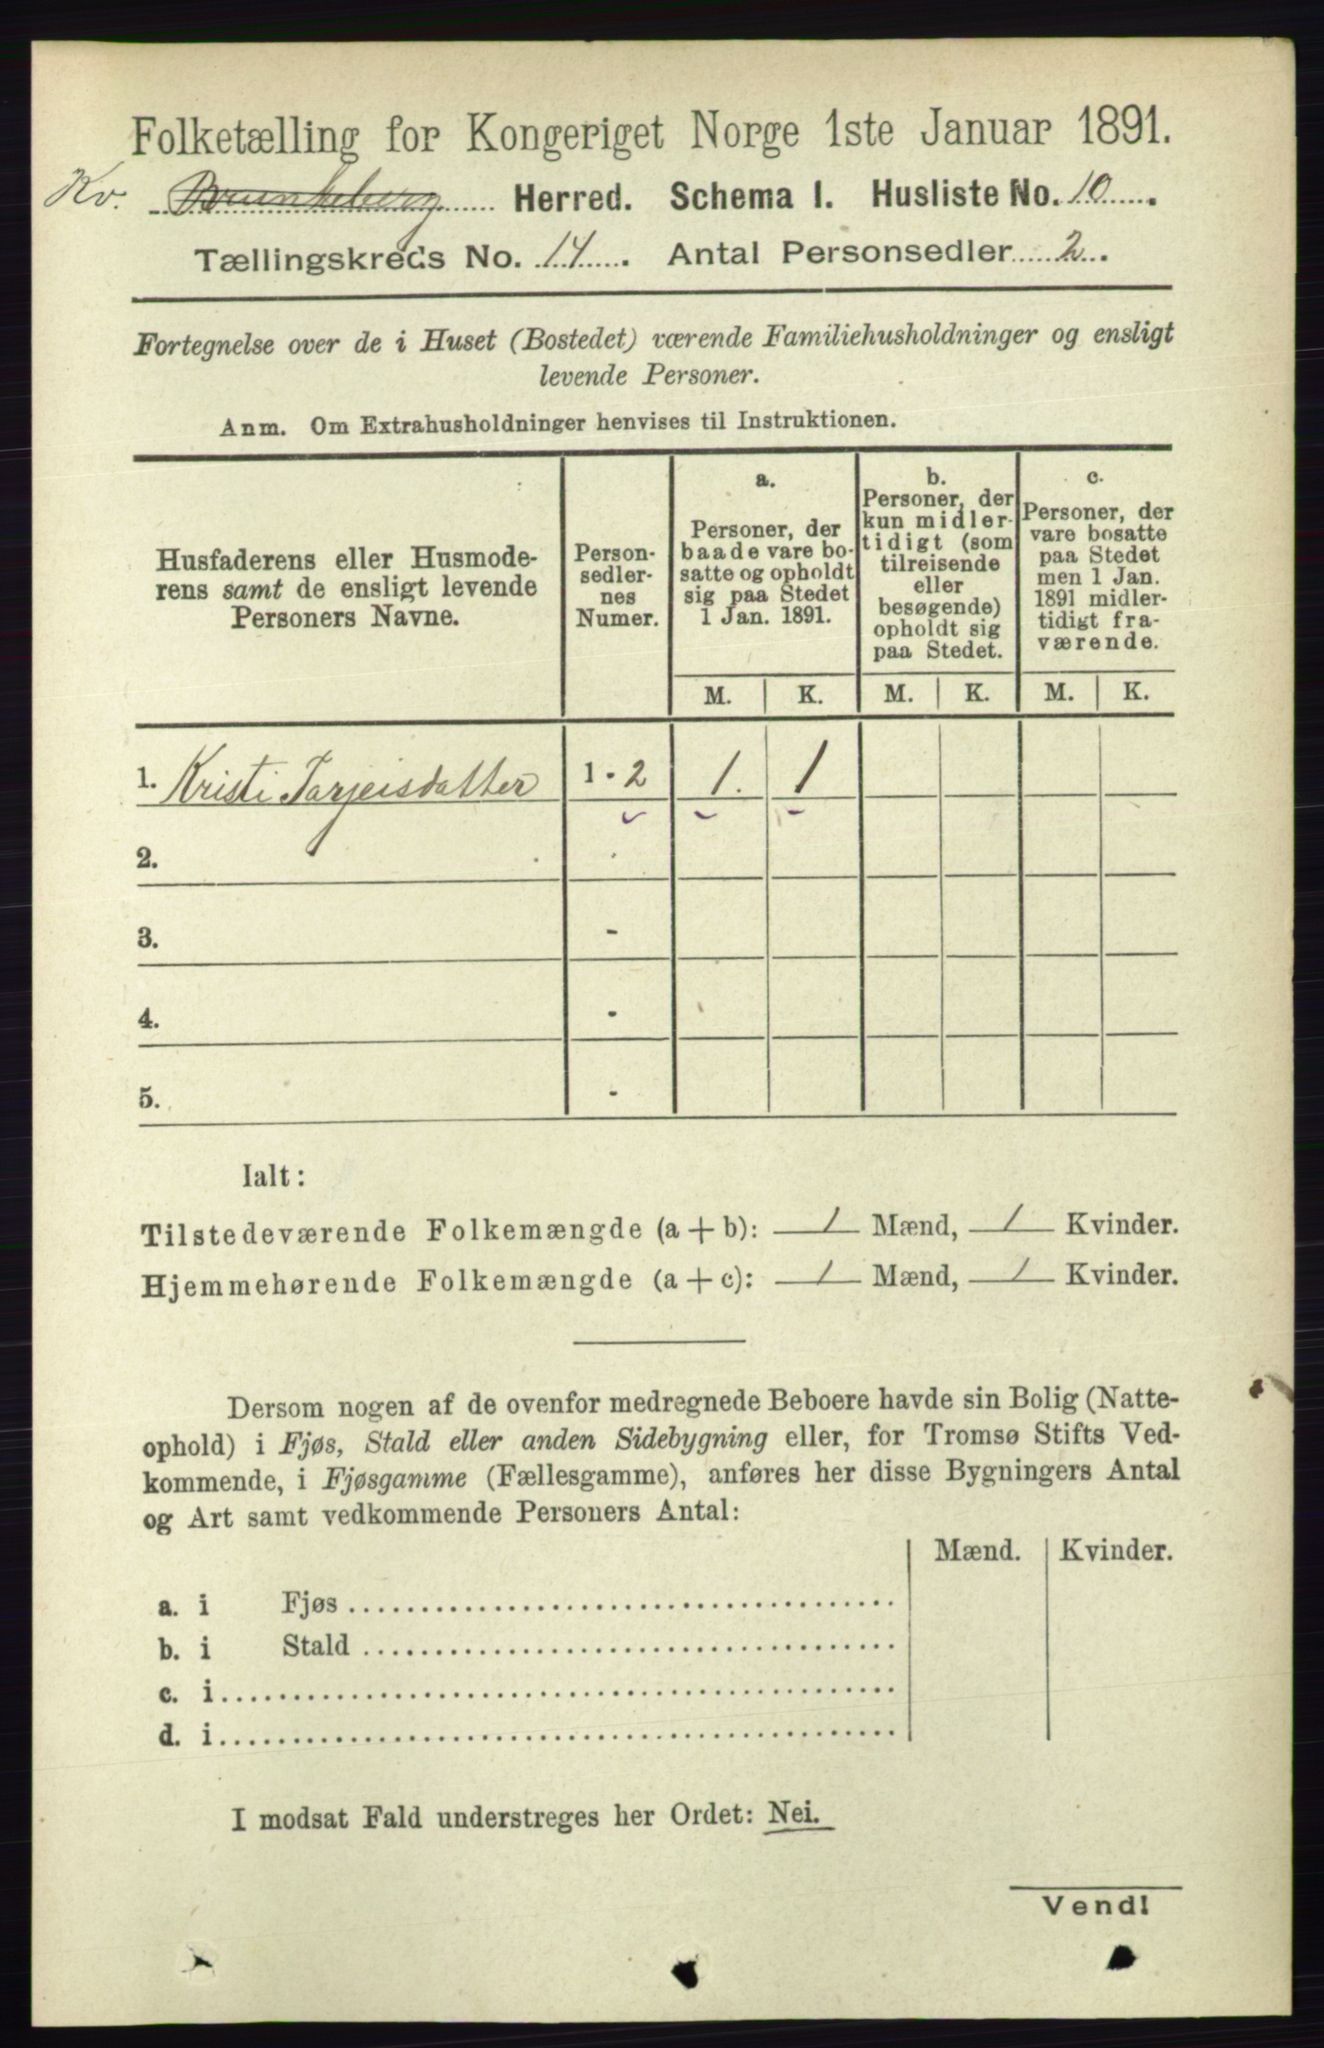 Folketælling for Kongeriget Norge 1ste Januar 1891.
Kv. Brunkeberg Herred. Schema I. Husliste No. 10.
Tællingskreds No. 14. Antal Personsedler 2.
Fortegnelse over de i Huset (Bostedet) værende Familiehusholdninger og ensligt
levende Personer.
Anm. Om Extrahusholdninger henvises til Instruktionen.
Husfaderens eller Husmode-
rens samt de ensligt levende
Personers Navne.
Person-
sedler-
nes
Numer.
a.
Personer, der
baade vare bo-
satte og opholdt
sig paa Stedet
1 Jan. 1891.
b.
Personer, der
kun midler-
tidigt (som
tilreisende
eller
besøgende)
opholdt sig
paa Stedet.
c.
Personer, der
vare bosatte
paa Stedet
men 1 Jan.
1891 midler-
tidigt fra-
værende.
M. K. M. K. M. K.
1. Kristi Tarjeisdatter 1 - 2 1. 1
2.
3. -
4. -
5. -
Ialt:
Tilstedeværende Folkemængde (a + b): 1 Mænd, 1 Kvinder.
Hjemmehørende Folkemængde (a + c): 1 Mænd, 1 Kvinder.
Dersom nogen af de ovenfor medregnede Beboere havde sin Bolig (Natte-
ophold) i Fjøs, Stald eller anden Sidebygning eller, for Tromsø Stifts Ved-
kommende, i Fjøsgamme (Fællesgamme), anføres her disse Bygningers Antal
og Art samt vedkommende Personers Antal:
Mænd. Kvinder.
a. i Fjøs
b. i Stald
c. i
d. i
I modsat Fald understreges her Ordet: Nei.
Vend!